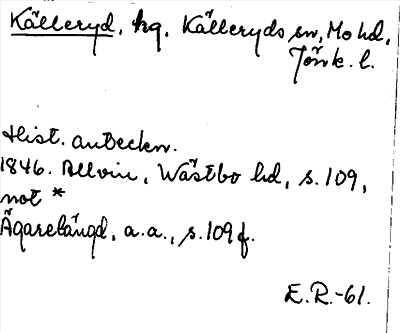 Källeryd, hg, Källeryds sn, Mo hd,
Jönk. l.
Hist. anteckn.
1846. Allvin, Wästbo hd, s. 109,
not *
Ägarelängd, a.a., s. 109 f.
E.R.-61.